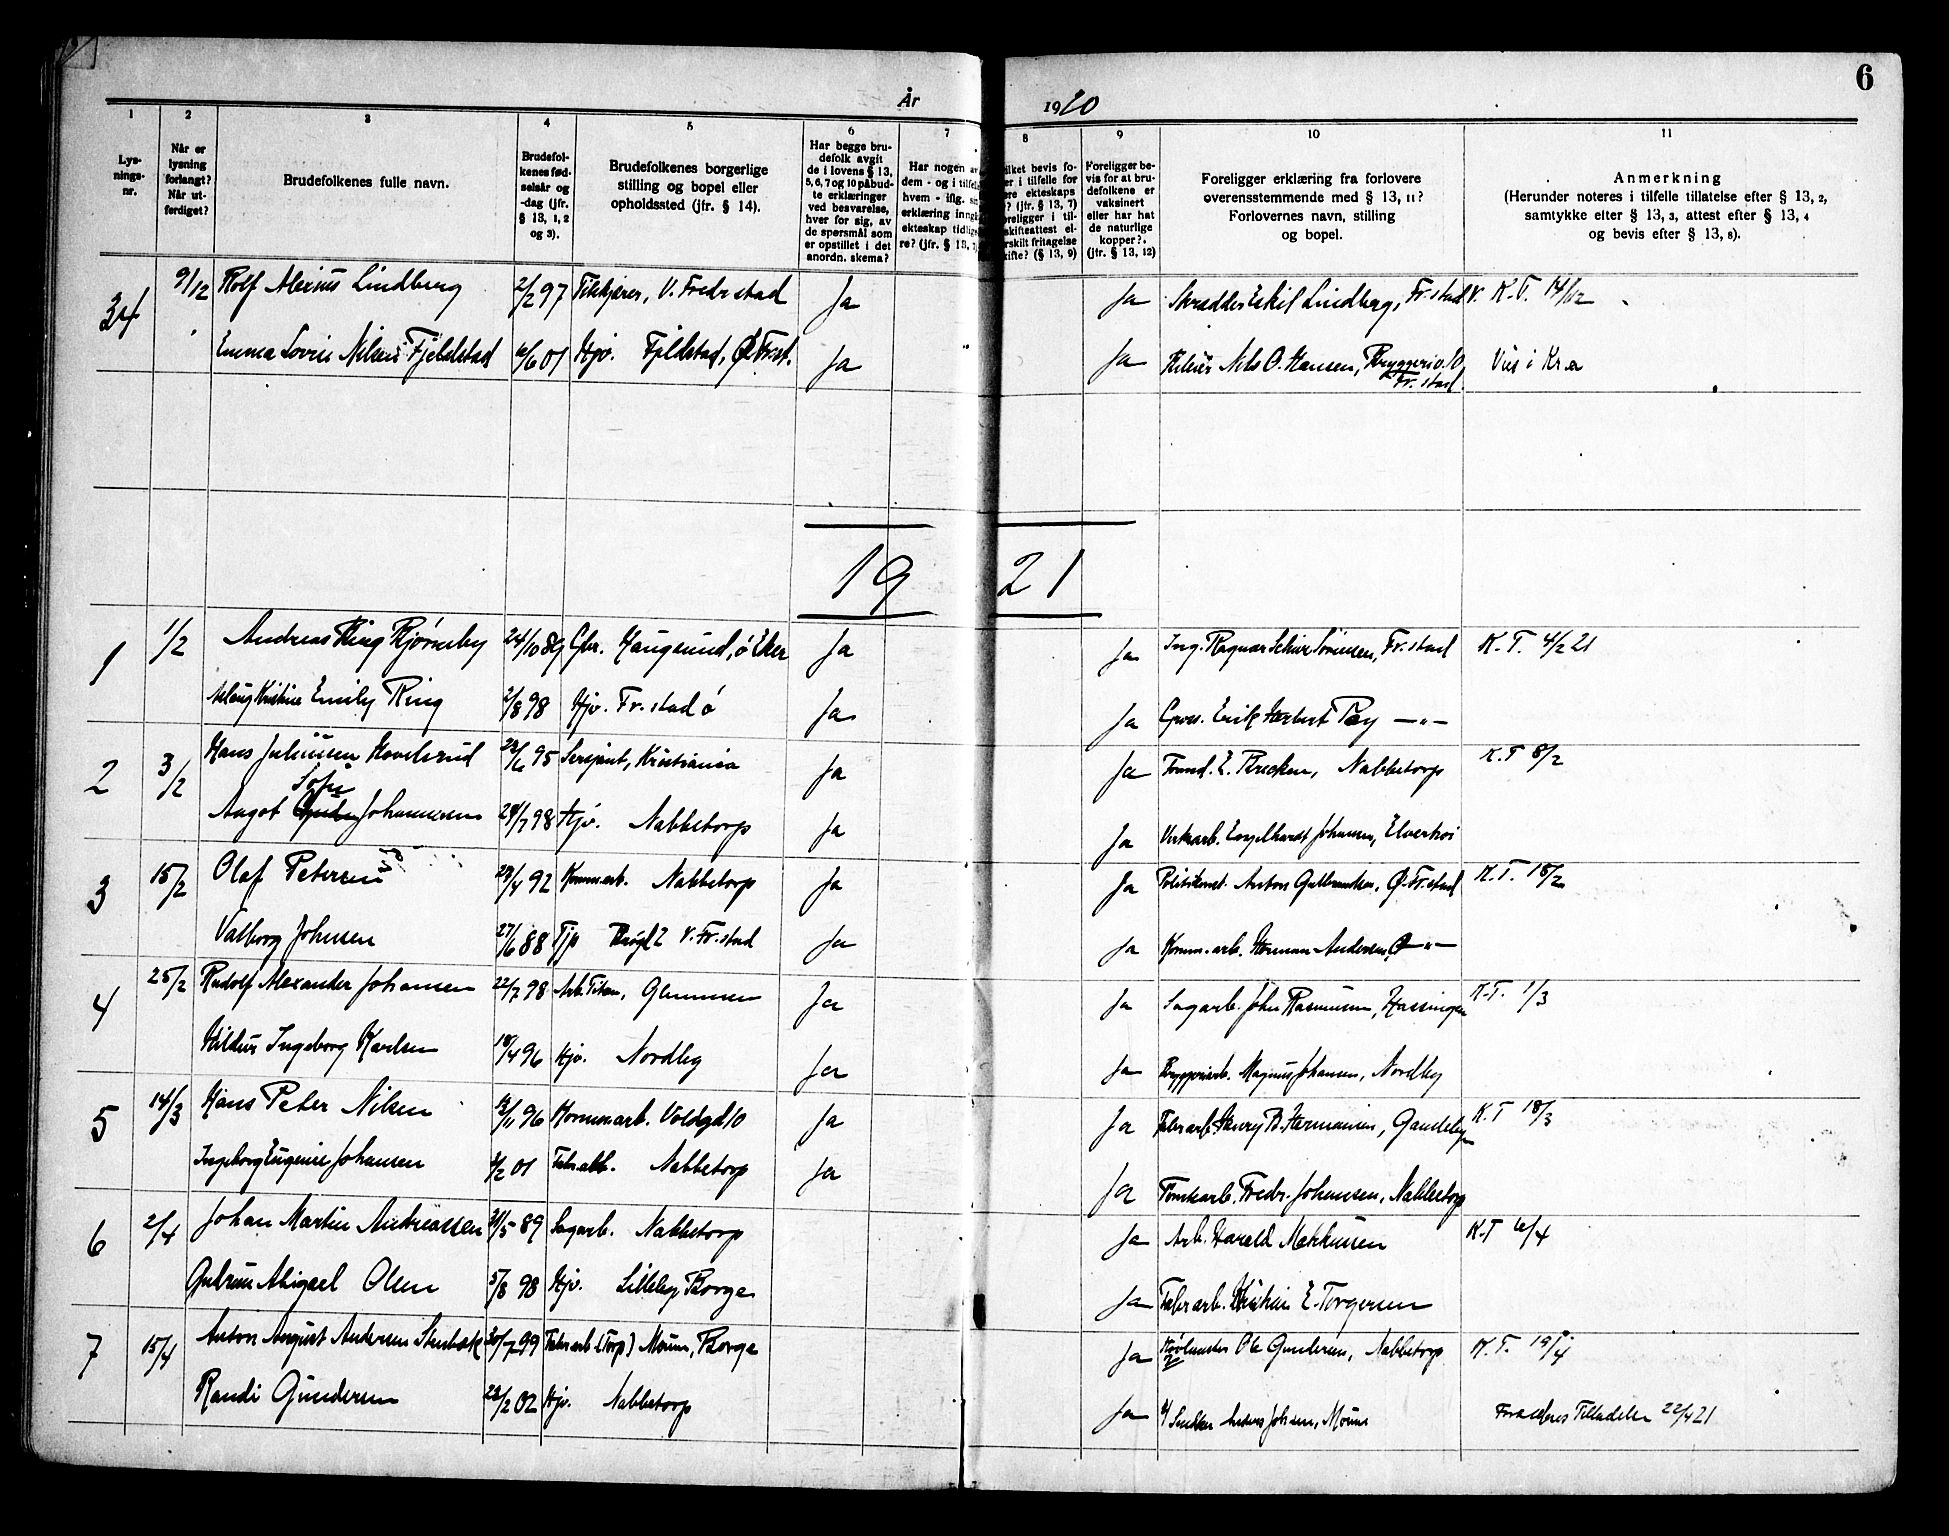 6
År 1920
1 2 3 4 5 6 7 8 9 10 11
Lys-
nings-
nr.
Når er
lysning
forlangt?
Når ut-
ferdiget?
Brudefolkenes fulle navn.
Brudefol-
kenes fød-
selsår og
-dag (jfr.
§ 13, 1, 2
og 3).
Brudefolkenes borgerlige
stilling og bopel eller
opholdssted (jfr. § 14).
Har begge bru-
defolk avgit
de i lovens § 13,
5, 6, 7 og 10 påbud-
te erklæringer
ved besvarelse,
hver for sig, av
de spørsmål som
er opstillet i det
anordn. skema?
Har nogen av
dem - og i tilfelle
hvem - iflg. sin
erklæring inngått
ekteskap tidlige-
re? (jfr. § 13, 7)
ilket bevis fo-
er i tilfelle for
ere ekteskaps
? (jfr. § 13, 7)
religger i til-
skifteattest el-
rskilt fritagelse
kifte? (§ 13, 9)
Foreligger be-
vis for at bru-
defolkene er
vaksinert
eller har hat
de naturlige
kopper?
(jfr. § 13, 12)
Foreligger erklæring fra forlovere
overensstemmende med § 13, 11?
Forlovernes navn, stilling
og bopel.
Anmerkning
(Herunder noteres i tilfelle tillatelse efter § 13, 2,
samtykke efter § 13, 3, attest efter § 13, 4
og bevis efter § 13, 8).
34 9/12 Rolf Alexius Lindberg 2/2 97 V. Fredrstad Ja Ja Skrædder Eskil Lindberg, Fr.stad V. K.T. 14/12
Emma Lovise Nilsen Fjeldstad 6/6 01 Hjv. Fjeldstad, Ø. Frst. Ja Ja Nils O. Hansen, Bryggeriv. 10 Viet i Kr.a
Fr.stad.
1921
1 1/2 Andreas Ring Bjørneby 24/10 89 Gbr. Haugsund, ø Eker Ja Ja Ing. Ragnar Sørensen, Fr.stad K.T. 4/2 21
Aslaug Kristine Emily Ring 2/8 98 Hjv. Fr.stad ø Ja Ja Gross. Erik Herbert Pay —"—
2 3/2 Hans Juliussen Hovelsrud 23/6 95 Sersjant, Kristiania Ja Ja Formd. E. Brecken, Nabbetorp K.T 8/2
Sofie
Aagot Johannessen 24/7 98 Hjv. Nabbetorp Ja Ja Verksarb. Engelhardt Johansen, Elverhøi
3 15/2 Olaf Petersen 29/4 92 Kommarb. Nabbetorp Ja Ja Politikonst. Anton Gulbrandsen, Ø. Fr.stad K.T. 18/2
Valborg Johnsen 27/6 88 Tjp V. Fr.stad Ja Ja Komm.arb. Herman Andersen, Ø —"—
4 25/2 Rudolf Alexander Johansen 22/7 98 Arb. Titan, Glemmen Ja Ja Sagarb. John Rasmussen, Hassingen K.T. 1/3
Hildur Ingeborg Karlsen 18/4 96 Hjv. Nordby Ja Ja Bryggeriarb. Magnus Johansen, Nordby
5 14/3 Hans Peter Nilsen 13/11 96 Kommarb. Voldgd 10 Ja Ja Fabr arb. Henry B. Hermansen, Gaudeby K.T 18/3
Ingeborg Eugenie Johansen 3/2 01 Fabr.arb. Nabbetorp Ja Ja Tomtearb. Fredr. Johansen, Nabbetorp
6 2/4 Johan Martin Andreassen 31/5 89 Sagarb. Nabbetorp Ja Arb. Harald Markussen K.T 6/4
Gudrun Abigael Olsen 5/8 98 Hjv. Lilleby, Borge Ja Fabr arb. Kristian E. Torgersen
7 15/4 Anton August Andersen Stenbæk 30/7 99 Fabr arb (Torp) Moum, Borge Ja Ole Gundersen, Nabbetorp K.T. 19/4
Randi Gundersen 22/2 02 Hjv. Nabbetorp Ja Snekker Anders Johansen, Moum Forældres Tilladelse 22/4 21